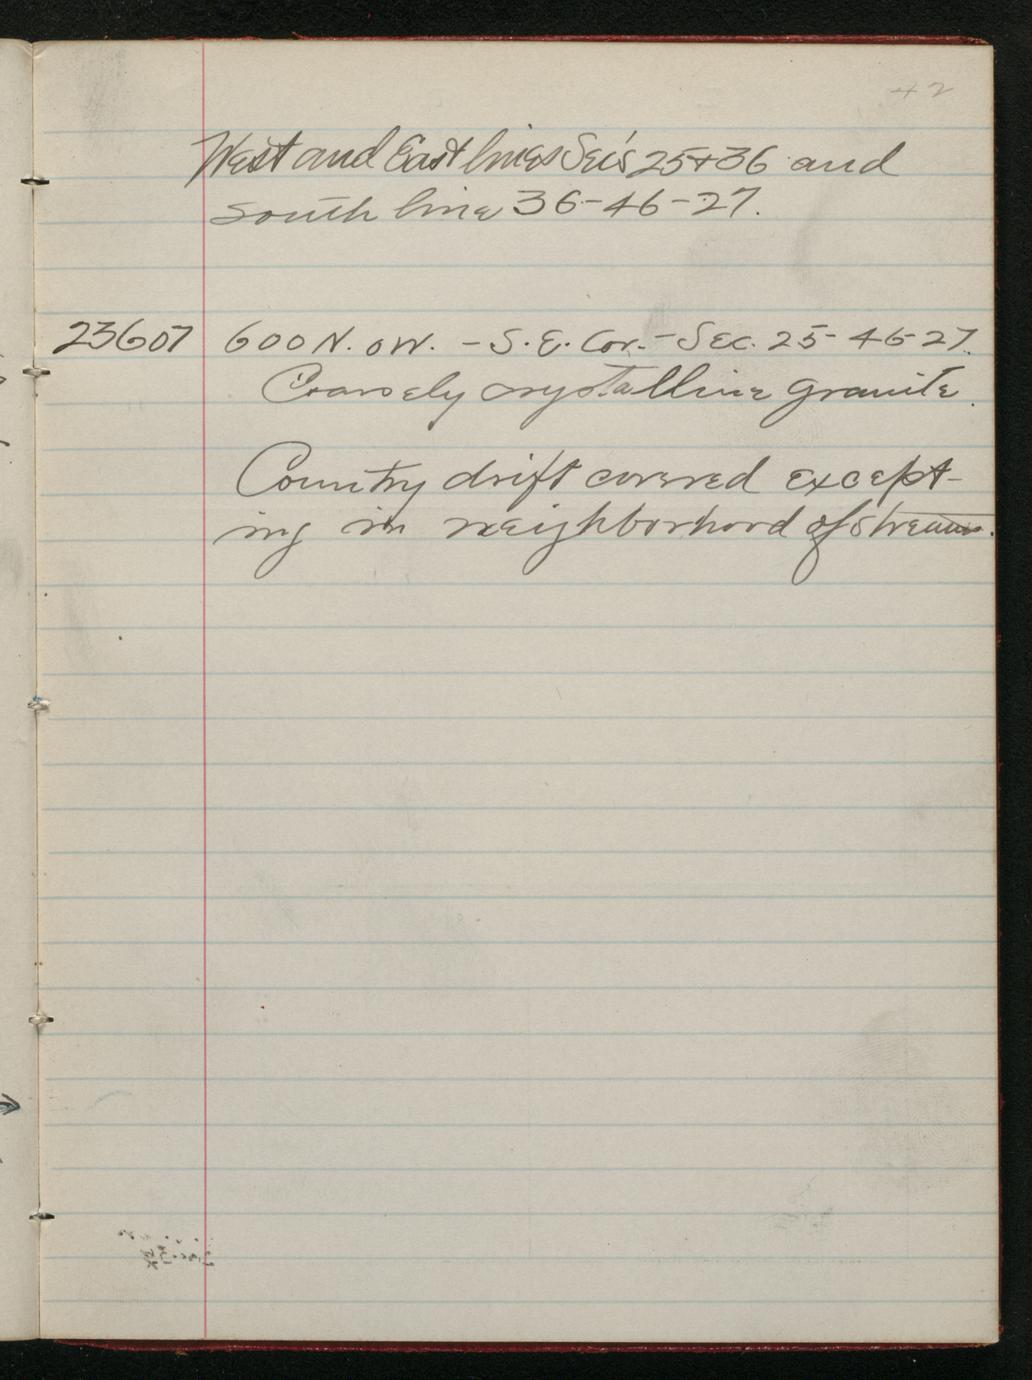 42
West and East lines Sec's 25+36 and
South line 36-46-27.
23607 600 N. 0 W. - S.E. Cor. - Sec. 25-46-27.
Coarsely crystalline granite.
Country drift covered except-
ing in neighborhood of streams.